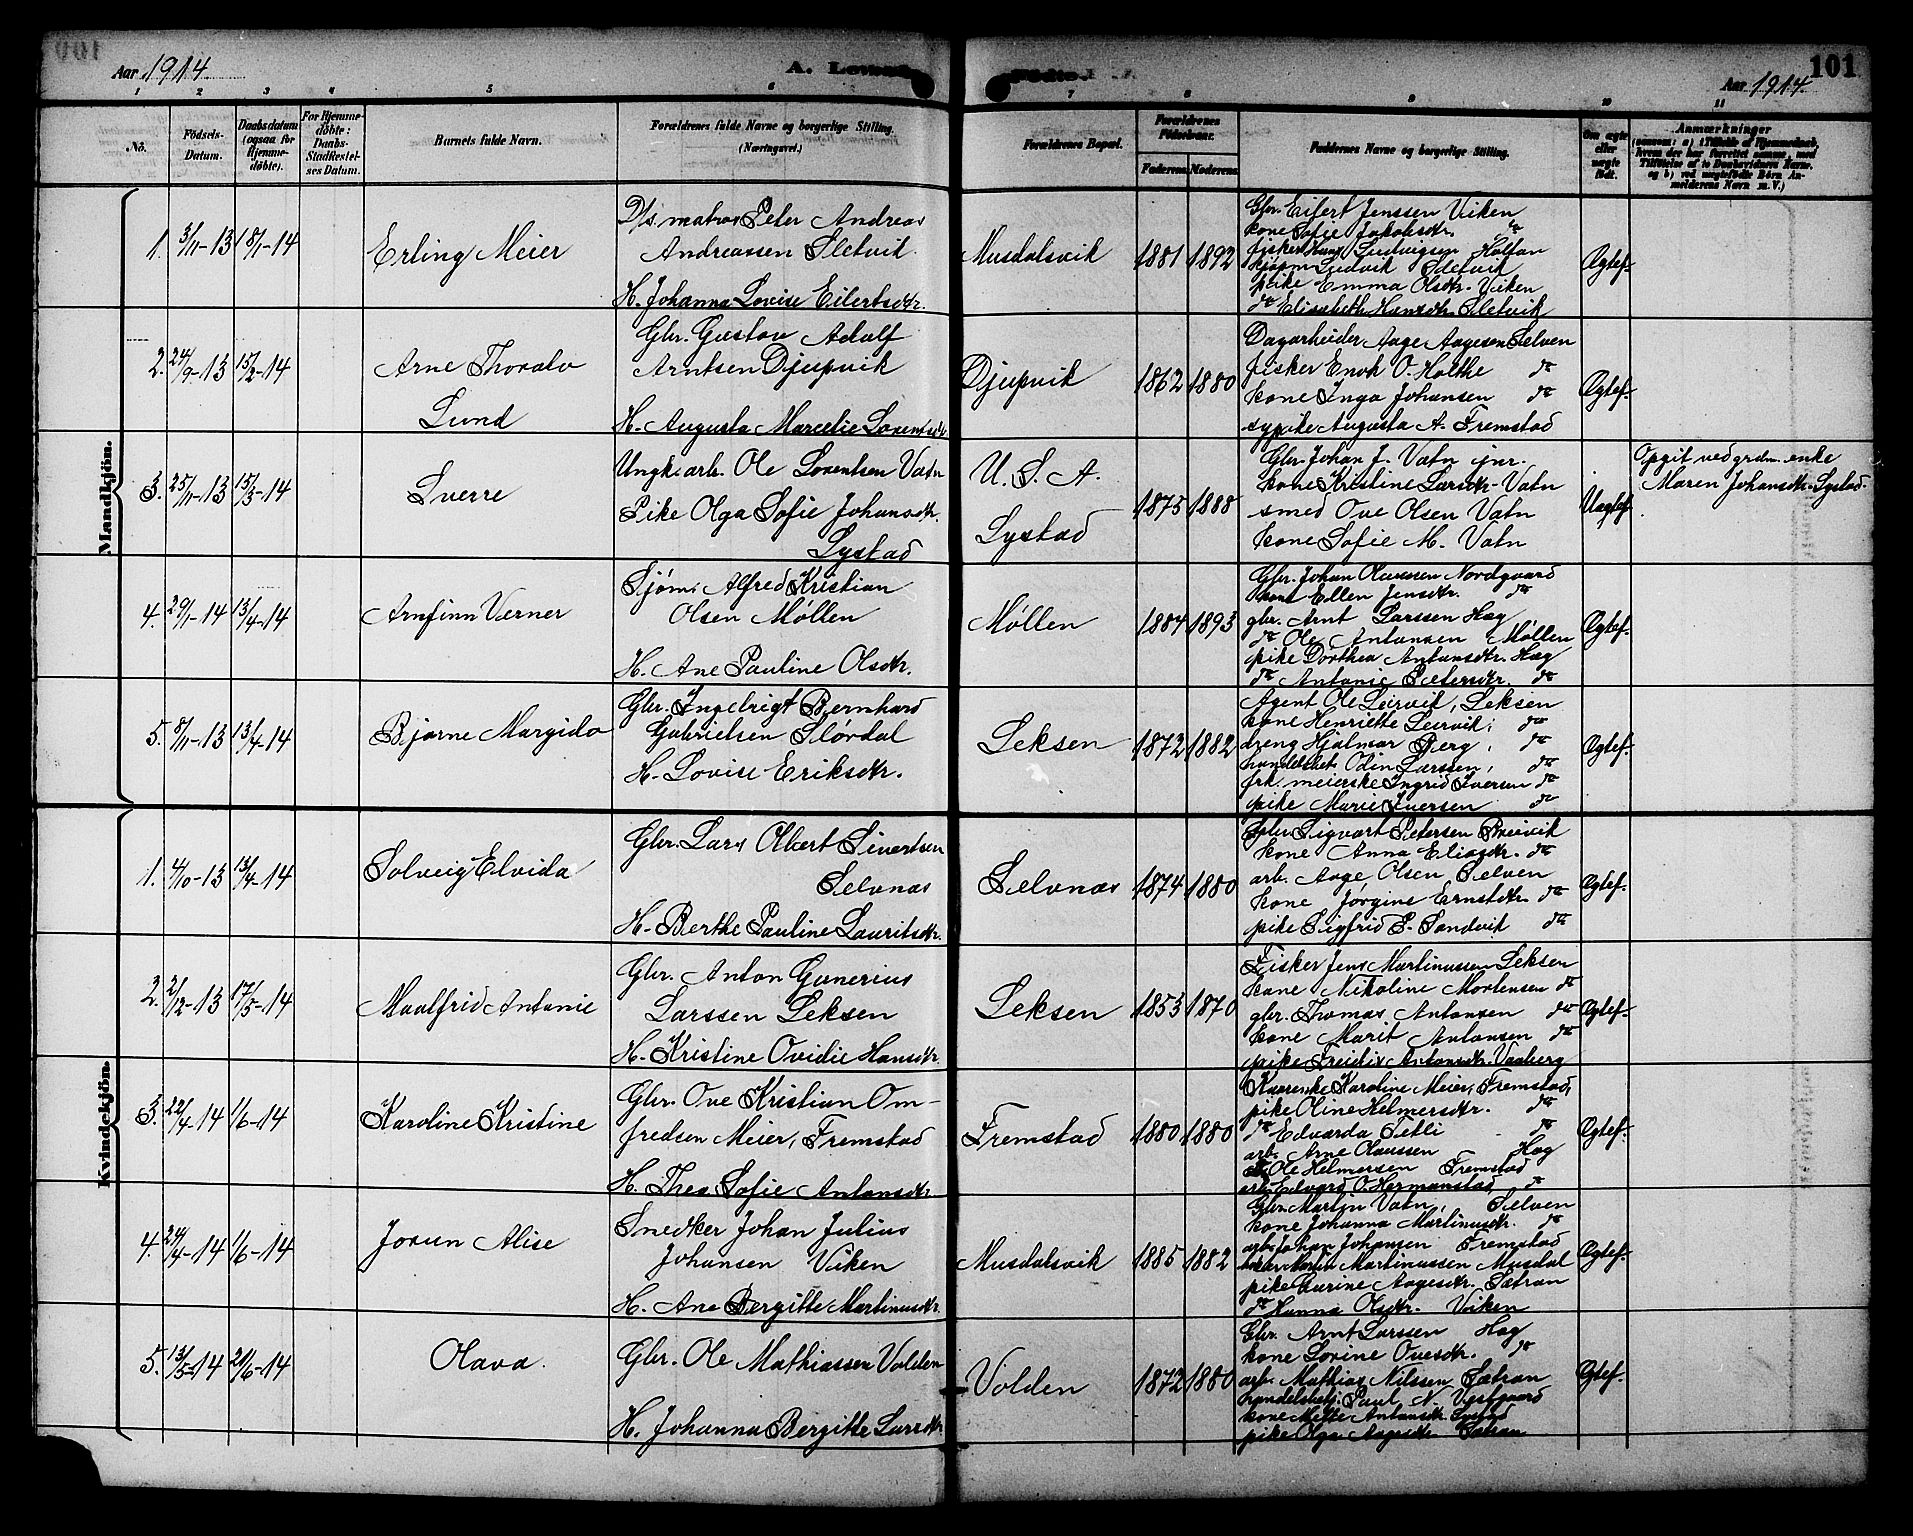 Aar 1914. A. Levende Fødte. Aar 1914. 101
1 2 3 4 5 6 7 8 9 10 11
No. Födsels-Datum. Daabsdatum (ogsaa for Hjemmedöbte). For Hjemmedöbte: Daabs-Stadfæstelses Datum. Barnets fulde Navn. Forældrenes fulde Navne og borgerlige Stilling. (Næringsvei.) Forældrenes Bopæl. Forældrenes Födselsaar. Faderens Moderens Faddernes Navne og borgerlige Stilling. Om ægte eller uægte födt. Anmærkninger
Mandkjön.
1. 3/11-13 18/1-14
Erling Meier
D/s. matros Peter Andreas
Andreassen Sletvik.
H. Johanna Lovise Eilertsdtr.
Musdalsvik 1881 1892
Gbr. Eilert Jenssen Viken
kone Sofie Jakobsdtr. do
fisker Hans Ludvigsen Holtan
Ludvik Sletvik
pike Emma Olsdtr. Viken
do Elisabeth Hansdtr. Sletvik
Ægtef.
2. 24/9-13 15/2-14
Arne Thoralv
Lund
Gbr. Gustav Adolf
Arntsen Djupvik
H. Augusta Marcelie Lorentsdtr
Djupvik 1862 1880
Dagarbeider Aage Aagesen Selven
fisker Enok O. Holthe do
kone Inga Johansen do
sypike Augusta A. Fremstad
Ægtef.
3. 25/11-13 15/3-14
Sverre
Ungk. arb. Ole Lorentsen Vatn
Pike Olga Sofie Johansdtr.
Lystad
U. S. A.
Lystad
1875 1888
Gbr. Johan J. Vatn jnr.
kone Kristine Larsdtr. Vatn
smed Ove Olsen Vatn
kone Sofie M. Vatn
Uægtef.
Opgit ved grdm. enke
Maren Johansdtr. Lystad.
4. 29/1-14 13/4-14
Arnfinn Verner
Sjøm. Alfred Kristian
Olsen Møllen
H. Ane Pauline Olsdtr.
Møllen 1884 1893
Gbr. Johan Olaussen Nordgaard
kone Ellen Jensdtr. do
gbr. Arnt Larssen Hag
do Ole Antonsen Møllen
pike Dorthea Antonsdtr. Hag
do Antonie Petersdtr. do
Ægtef.
5. 8/11-13 13/4-14
Bjarne Margido
Gbr. Ingebrigt Bernhard
Gabrielsen Slørdal
H. Lovise Eriksdtr.
Leksen 1872 1882
Agent Ole Leirvik, Leksen
kone Henriette Leirvik, do
dreng Hjalmar Berg, do
handelsbet. Odin Larssen, do
frk. meierske Ingrid Iversen do
pike Marie Iversen do
Ægtef.
Kvindekjön.
1. 4/10-13 13/4-14
Solveig Elvida
Gbr. Lars Olbert Sivertsen
Selvnæs
H. Berthe Pauline Lauritsdtr.
Selvnæs 1874 1880
Gbr. Sigvart Petersen Breivik
kone Anna Eliasdtr. do
arb. Aage Olsen Selven
kone Jørgine Ernstdtr. do
pike Sigfrid E. Sandvik do
Ægtef.
2. 2/12-13 17/5-14
Maalfrid Antonie
Gbr. Anton Gunerius
Larssen Leksen
H. Kristine Ovidie Hansdtr
Leksen 1853 1870
Fisker Jens Martinussen Leksen
kone Nikoline Mortensen do
gbr. Thomas Antonsen do
kone Marit Antonsen do
pike Antonsdtr. Vaaberg
Ægtef.
3. 22/4-14 1/6-14
Karoline Kristine
Gbr. Ove Kristian Om-
fredsen Meier, Fremstad
H. Thea Sofie Antonsdtr
Fremstad 1880 1880
Karoline Meier, Fremstad,
pike Oline Helmersdtr. do
do Edvarda Setli do
arb. Arne Olaussen Hag
do Ole Helmersen Fremstad
arb. Edvard O. Hermanstad do
Ægtef.
4. 24/4-14 1/6-14
Jorun Alise
Snedker Johan Julius
Johansen Viken
H. Ane Bergitte Martinusdtr.
Musdalsvik 1885 1882
Gbr. Martin Vatn, Selven
kone Johanna Martinusdtr. do
arb. Johan Johansen Fremstad
Martin Martinussen Musdal
pike Aagesdtr. Sætran
do Hanna Olsdtr. Viken
Ægtef.
5. 13/5-14 21/6-14
Olava.
Gbr. Ole Mathiassen Volden
H. Johanna Bergitte Larsdtr
Volden 1872 1880
Gbr. Arnt Larssen Hag
kone Lovine Ovesdtr. do
arb. Mathias Nilssen Sætran
handelsbetj. Paul N. Vestgaard
kone Mette Antonsdtr.
pike Olga Aagesdtr Sætran
Ægtef.